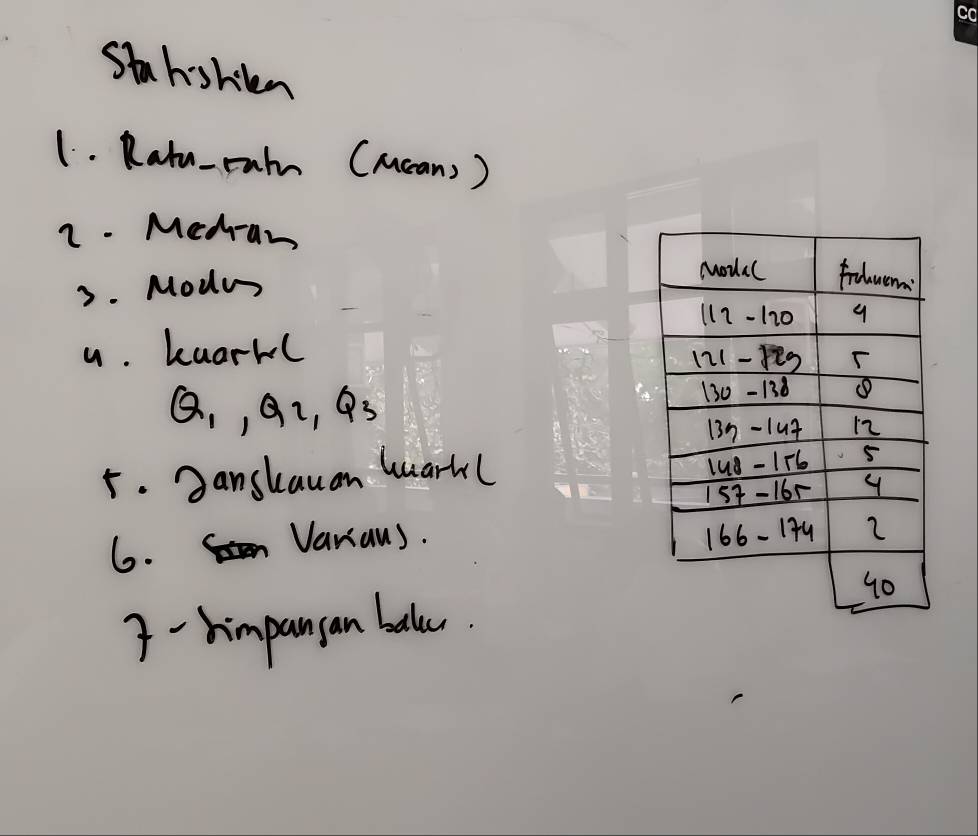 Statistika
1. Rata-rata (Means)
2. Median
3. Modus
4. kuartil
Q1, Q2, Q3
5. Jangkauan kuartil
6. Varians.
7 - Simpangan baku.
Modal frekuensi
112 - 120 4
121 - 129 5
130 - 138 8
139 - 147 12
148 - 156 5
157 - 165 4
166 - 174 2
40
CO